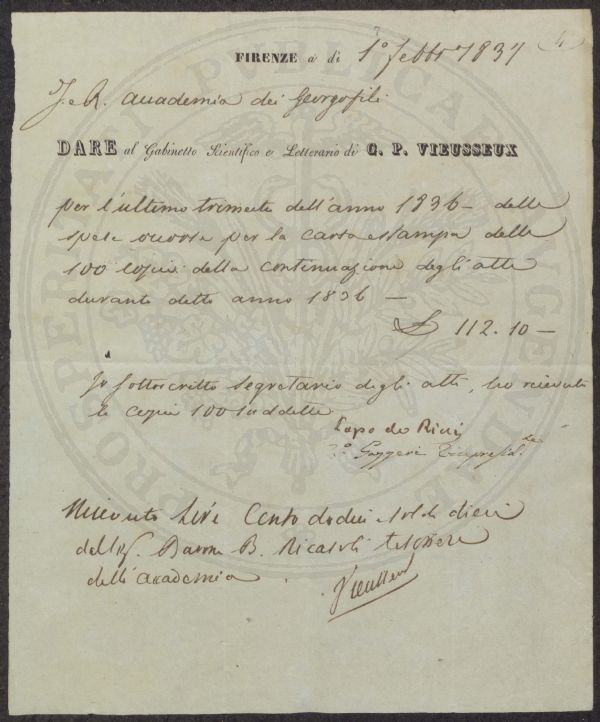 FIRENZE a di 1º febbº 1837
I. e R. Accademia dei Georgofili
DARE al Gabinetto Scientifico e Letterario di G. P. VIEUSSEUX
per l'ultimo trimestre dell'anno 1836 — delle
spese occorse per la carta e stampa delle
100 copie della continuazione degli atti
durante detto anno 1836 —
£ 112.10 —
Io sottoscritto Segretario degli atti, ho ricevute
le copie 100 suddette
Lapo de Ricci
Vº Gazzeri Vicepresid.te
Ricevuto Lire Cento dodici e soldi dieci
dall'Ill. Barone B. Ricasoli tesoriere
dell'Accademia
Vieusseux
PROSPERITATI PUBLICAE AUGENDAE